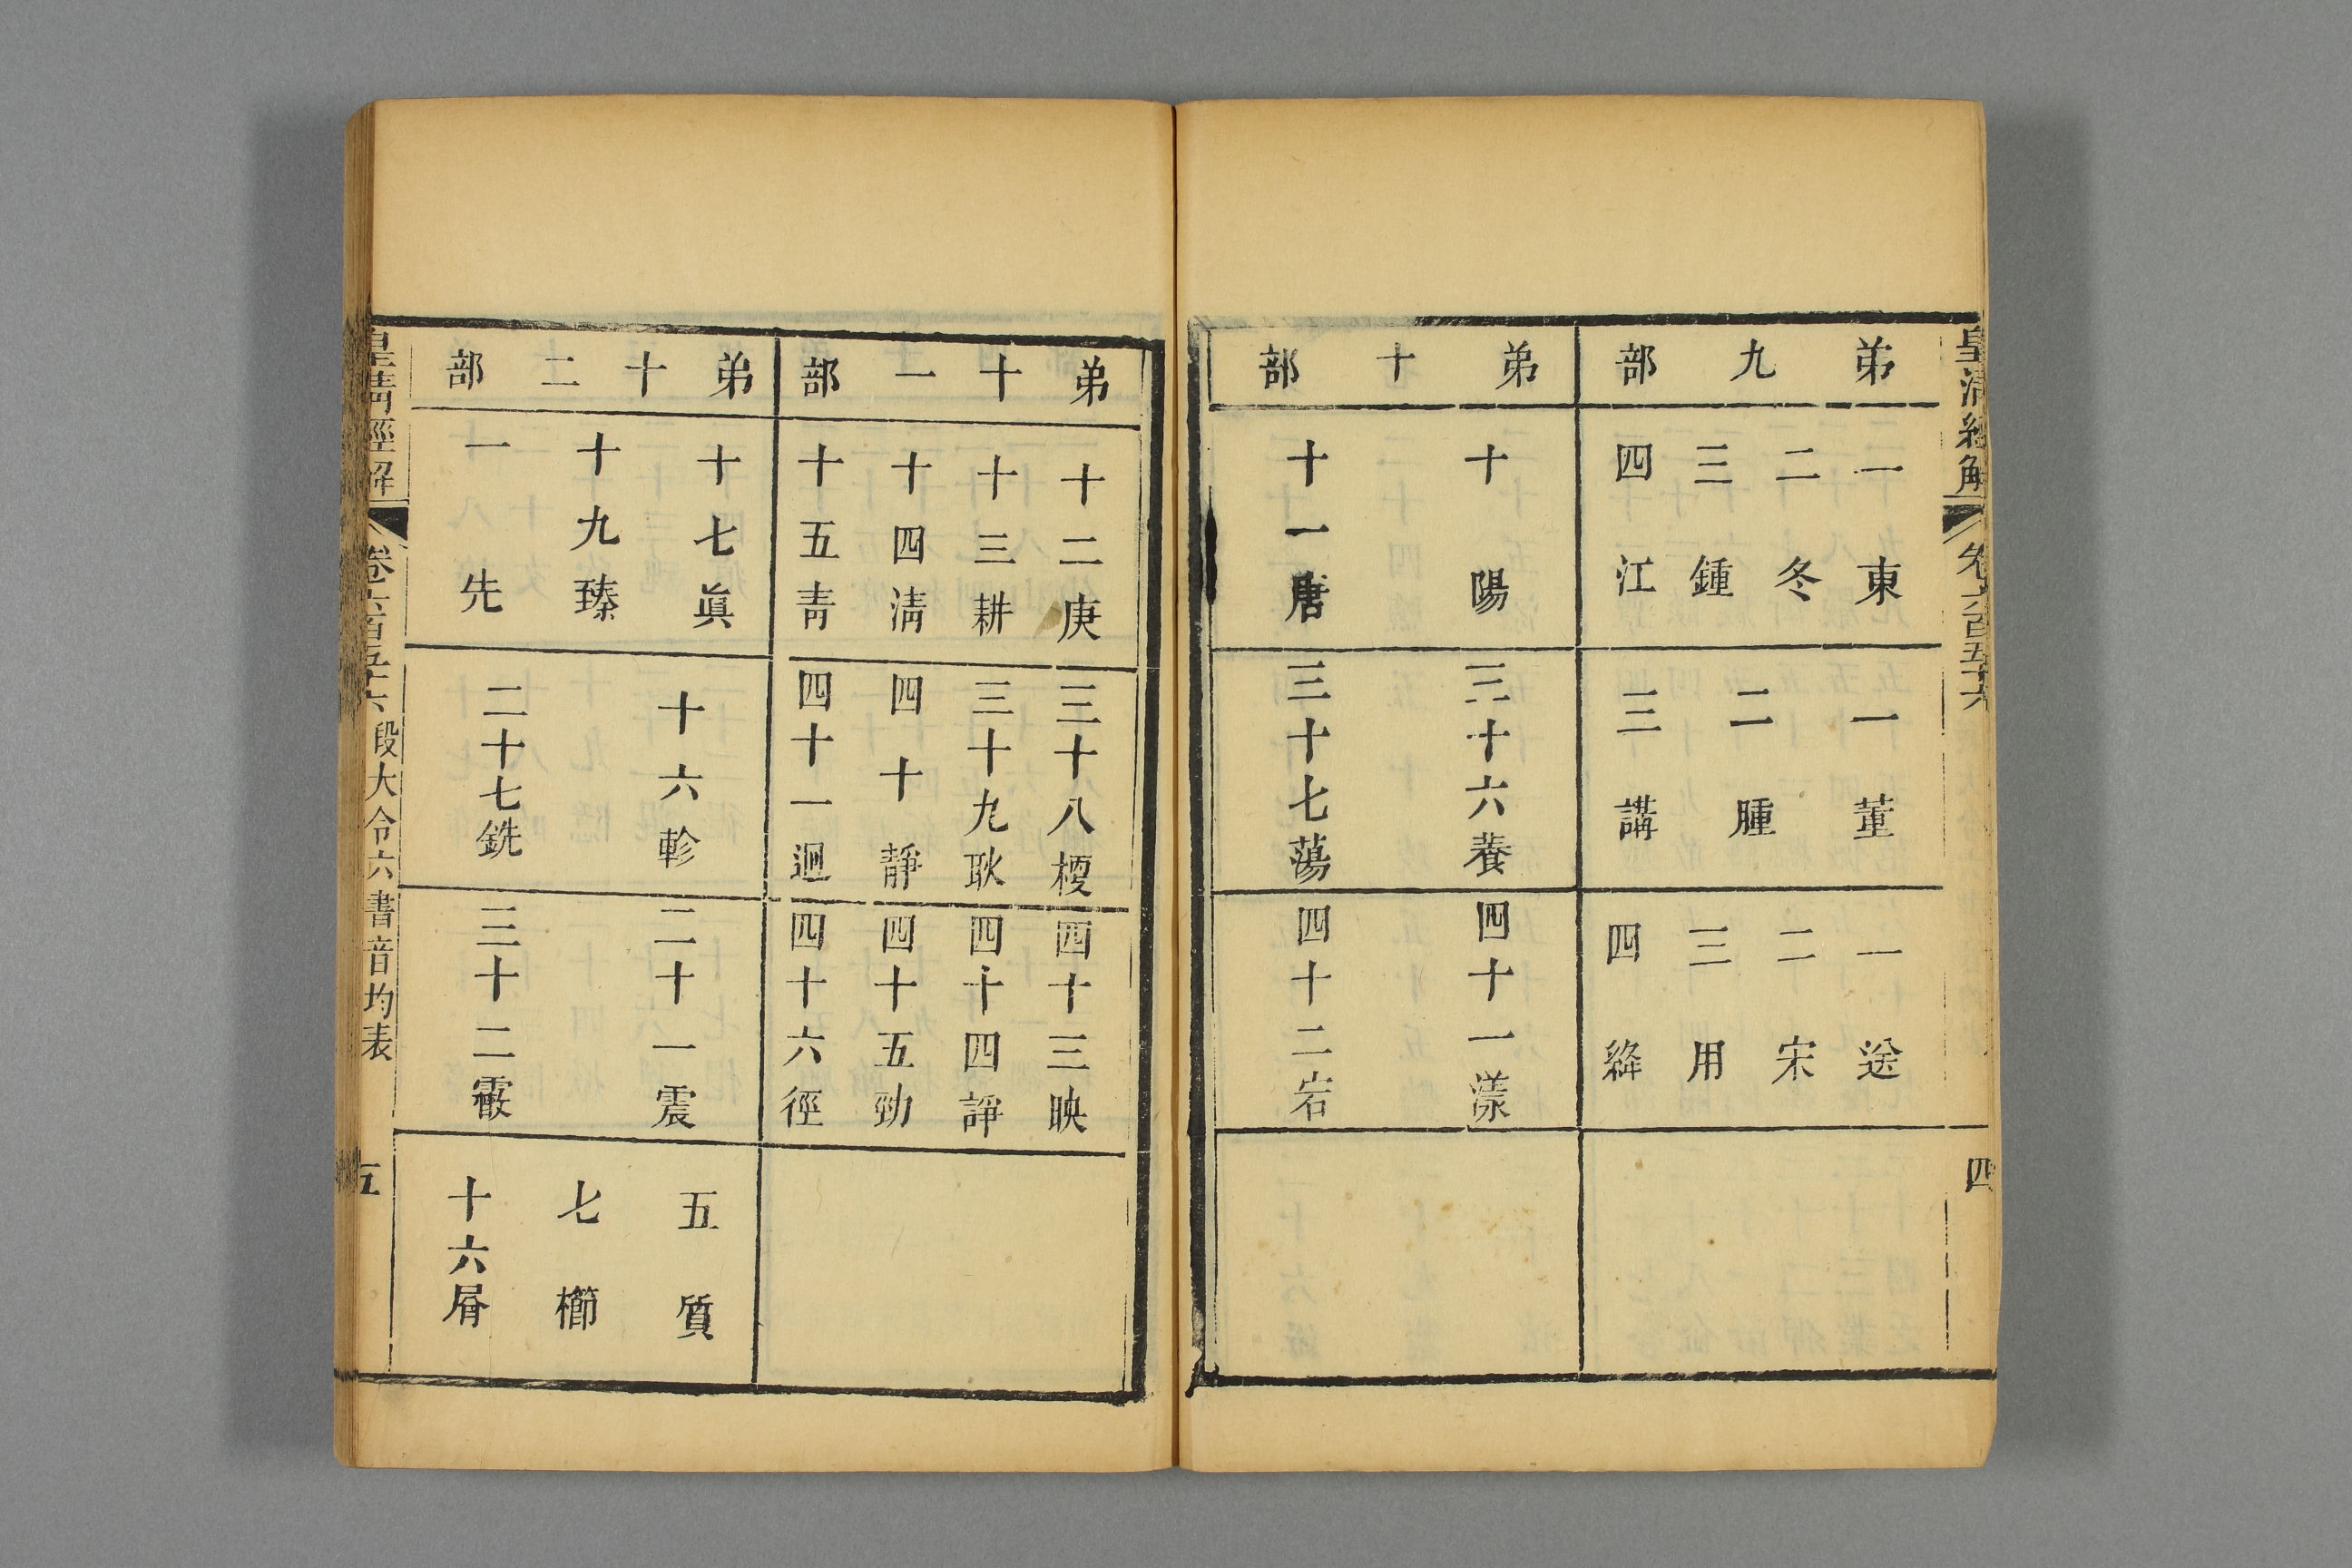 皇清經解
卷六百五十六
四
弟九部
一東
二冬
三鍾
四江
一董
二腫
三講
一送
二宋
三用
四絳
弟十部
十陽
十一唐
三十六養
三十七蕩
四十一漾
四十二宕
弟十一部
十二庚
十三耕
十四淸
十五靑
三十八梗
三十九耿
四十靜
四十一迥
四十三映
四十四諍
四十五勁
四十六徑
弟十二部
十七眞
十九臻
一先
十六軫
二十七銑
二十一震
三十二霰
五質
七櫛
十六屑
皇淸經解
卷六百五十六
段大令六書音均表
五